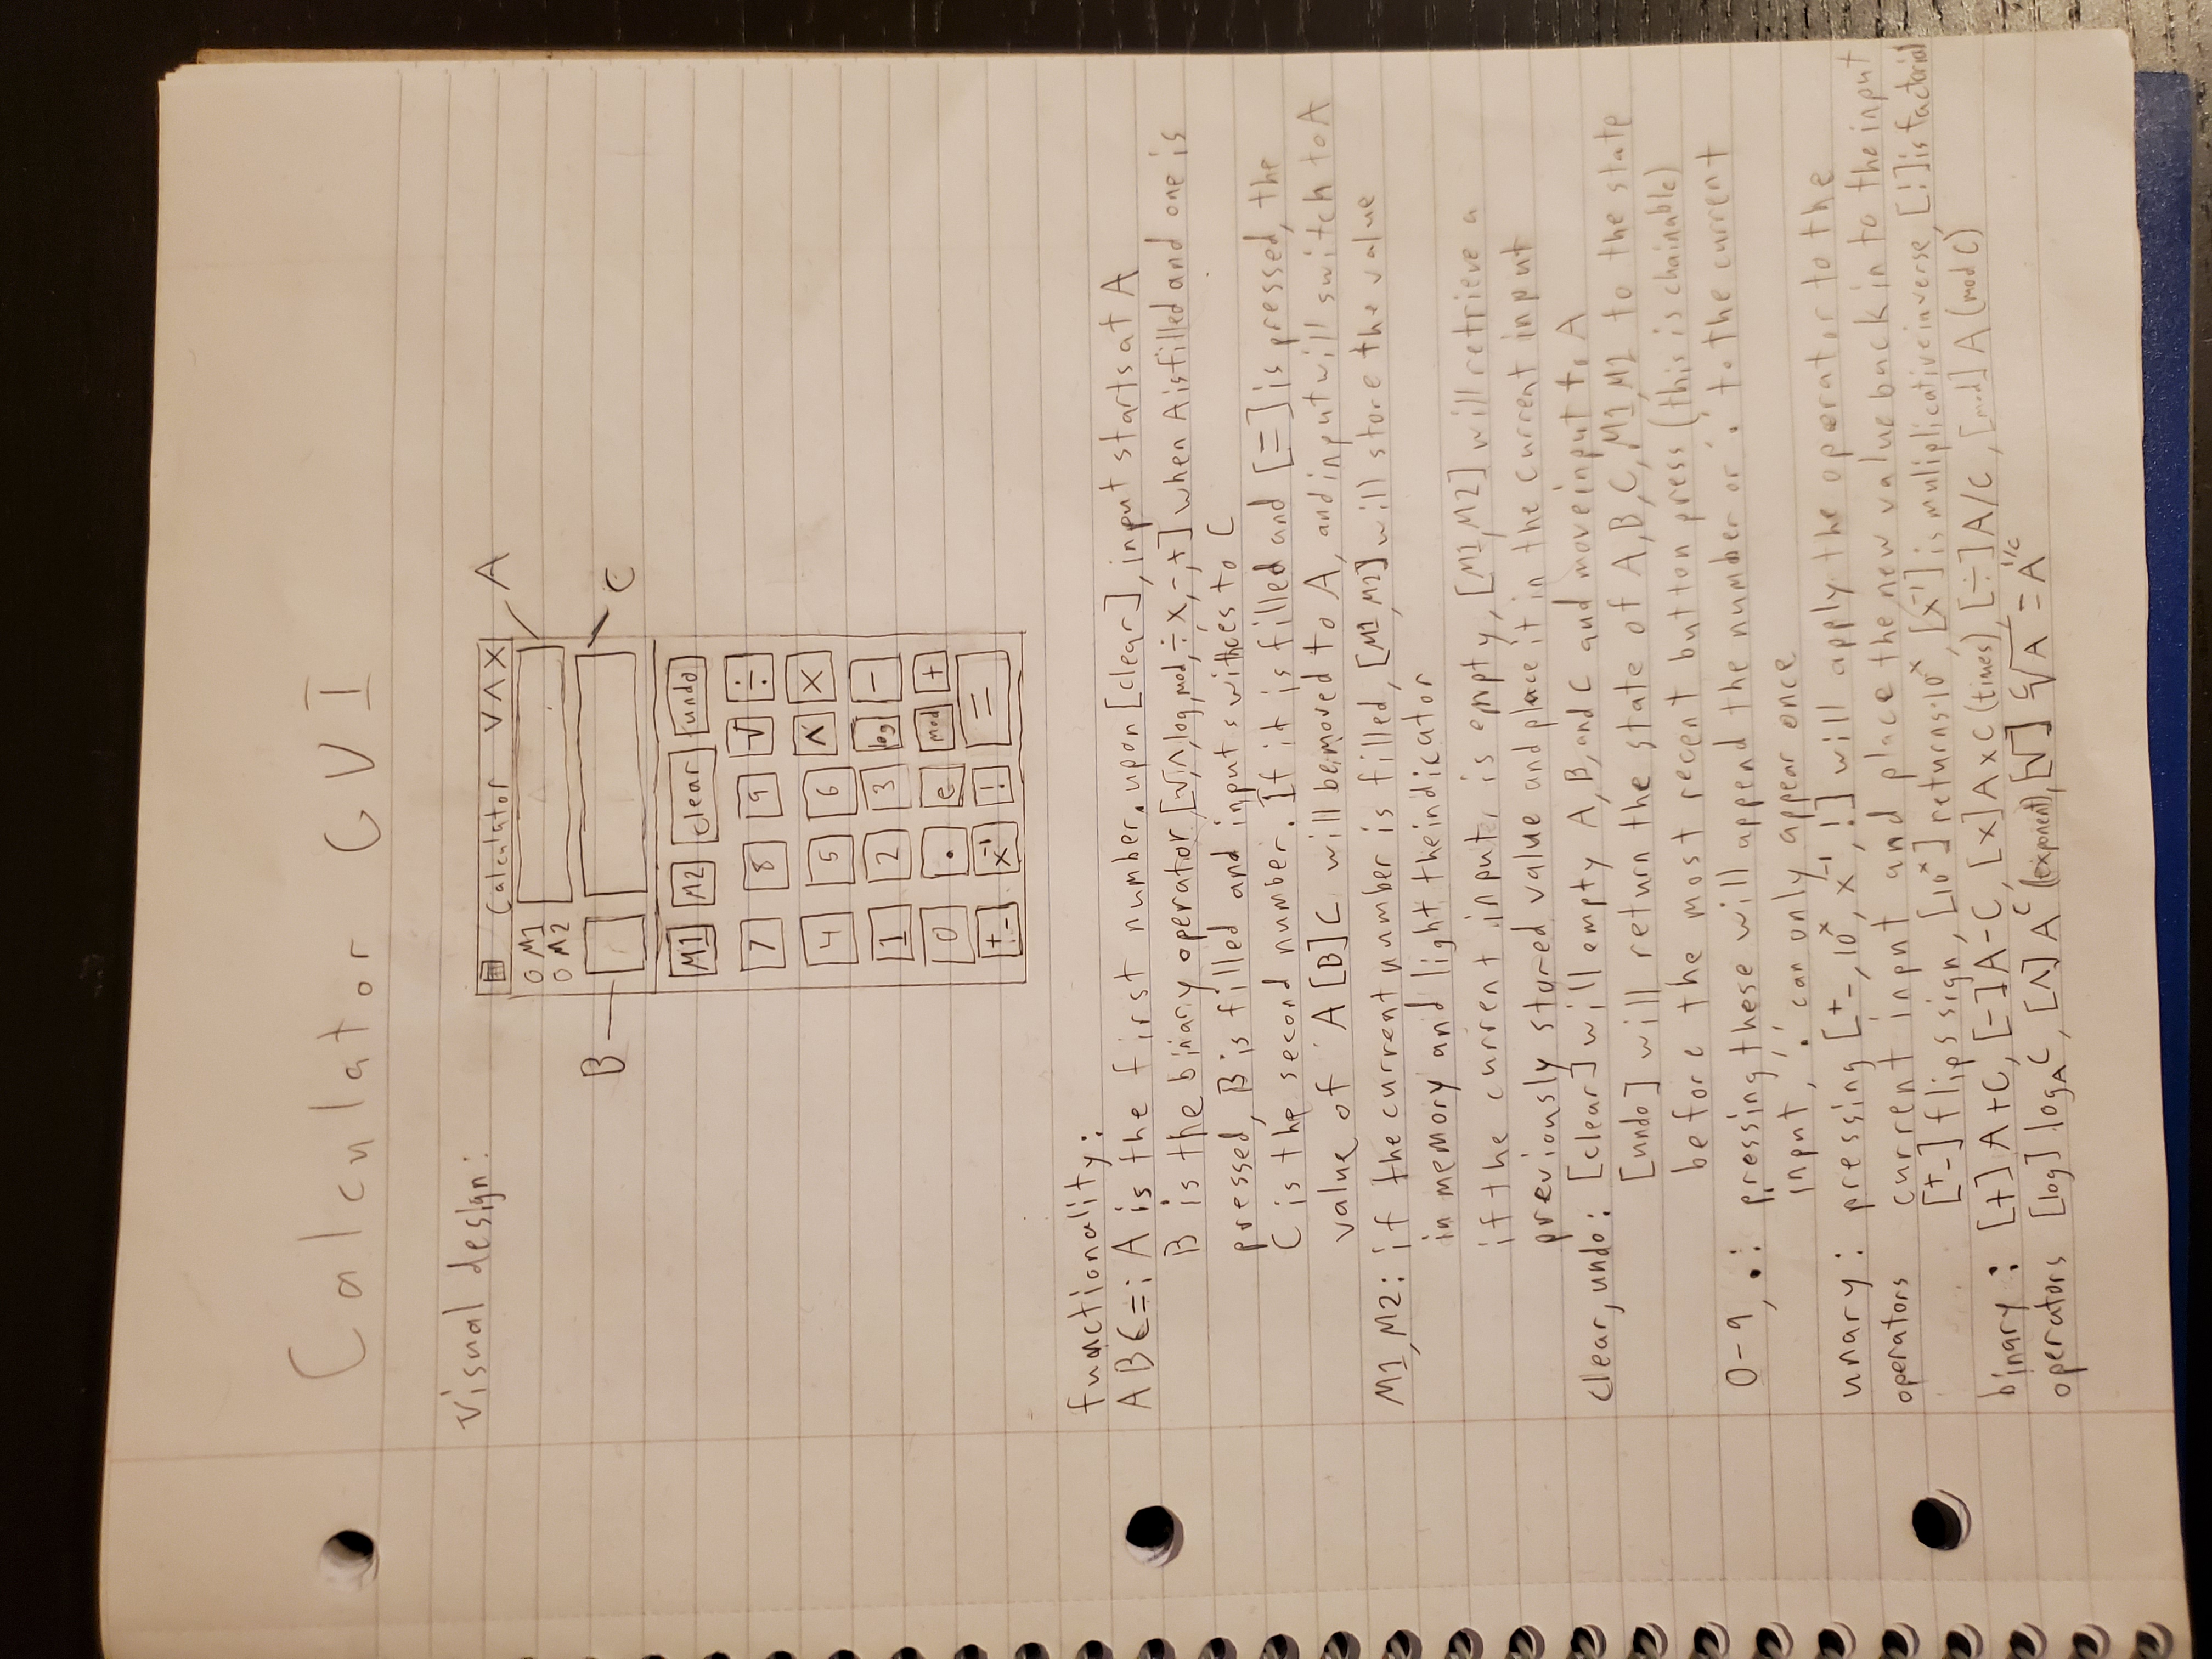 Calculator GUI
visual design:
Calculator V Λ X
A
M1
M2
B
C
M1 M2 clear undo
7 8 9 √ ÷
4 5 6 ^ X
1 2 3 log -
0 . e mod +
+- x⁻¹ ! =
functionality:
ABC=: A is the first number. upon [clear], input starts at A
B is the binary operator [√,^,log,mod,÷,x,-,+] when A is filled and one is
pressed, B is filled and input swithces to C
C is the second number. If it is filled and [=] is pressed, the
value of A[B]C will be moved to A, and input will switch to A
M1, M2: if the current number is filled, [M1,M2] will store the value
in memory and light the indicator
if the current input, is empty, [M1,M2] will retrieve a
previously stored value and place it in the current input
clear, undo: [clear] will empty A, B, and C and move input to A
[undo] will return the state of A,B,C,M1,M2 to the state
before the most recent button press (this is chainable)
0-9, .: pressing these will append the number or '.' to the current
input, '.' can only appear once
unary: pressing [+-, 10ˣ, x⁻¹, !] will apply the operator to the
operators current input and place the new value back in to the input
[+-] flips sign, [10ˣ] returns 10ˣ, [x⁻¹] is muliplicative inverse, [!] is factorial
binary: [+] A+C, [-] A-C, [x] AxC (times), [÷] A/C, [mod] A (mod C)
operators [log] log_A C, [^] A^C (exponent), [√] ᶜ√A = A^(1/C)